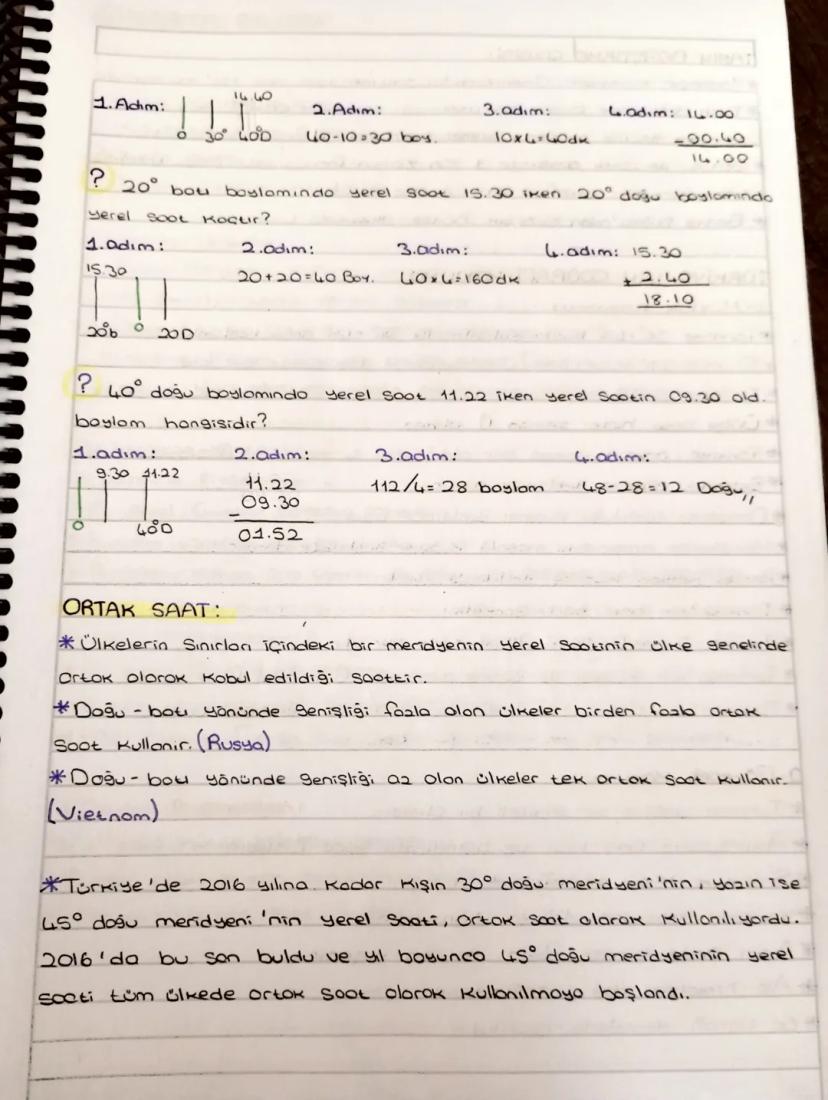 14.40
1.Adım: 2.Adım: 3.adım: 4.adım: 14.00
0 30° 40°D 40-10=30 boy. 10x4=40dk -00.40
14.00
? 20° batı boylamında yerel saat 15.30 iken 20° doğu boylamında
yerel saat kaçtır?
1.adım: 2.adım: 3.adım: 4.adım: 15.30
15.30 20+20=40 Boy. 40x4=160dk + 2.40
18.10
20°b 0 20D
? 40° doğu boylamında yerel saat 11.22 iken yerel saatin 09.30 old.
boylam hangisidir?
1.adım: 2.adım: 3.adım: 4.adım:
9.30 11.22 11.22 112/4=28 boylam 48-28=12 Doğu,,
-09.30
0 40°D 01.52
ORTAK SAAT:
*Ülkelerin sınırları içindeki bir meridyenin yerel saatinin ülke genelinde
ortak olarak kabul edildiği saattir.
*Doğu-batı yönünde genişliği fazla olan ülkeler birden fazla ortak
saat kullanır. (Rusya)
*Doğu-batı yönünde genişliği az olan ülkeler tek ortak saat kullanır.
(Vietnam)
*Türkiye'de 2016 yılına kadar kışın 30° doğu meridyeni'nin, yazın ise
45° doğu meridyeni'nin yerel saati, ortak saat olarak kullanılıyordu.
2016'da bu son buldu ve yıl boyunca 45° doğu meridyeninin yerel
saati tüm ülkede ortak saat olarak kullanılmaya başlandı.